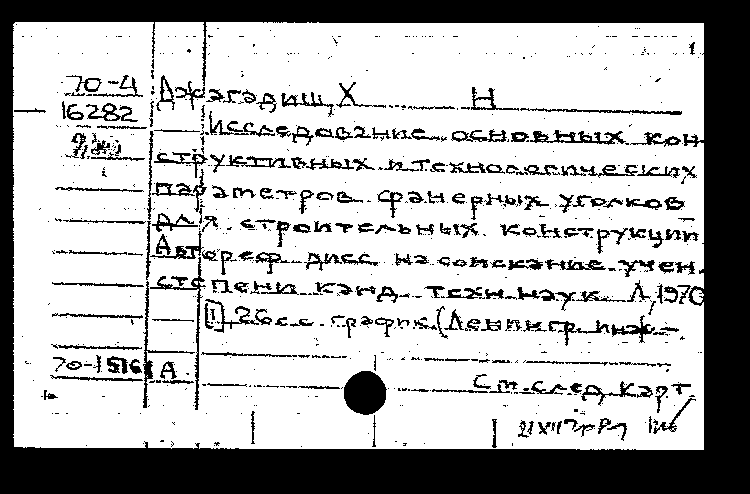 70-4 Джагадиш, Х Н
16282 Исследование основных кон-
структивных и технологических
параметров фанерных уголков
для строительных конструкций
Автореф дисс на соискание учен.
степени канд. техн. наук. Л, 1970
[1], 26 с. с. график. (Ленингр. инж.-
70-1516 А
См. след карт